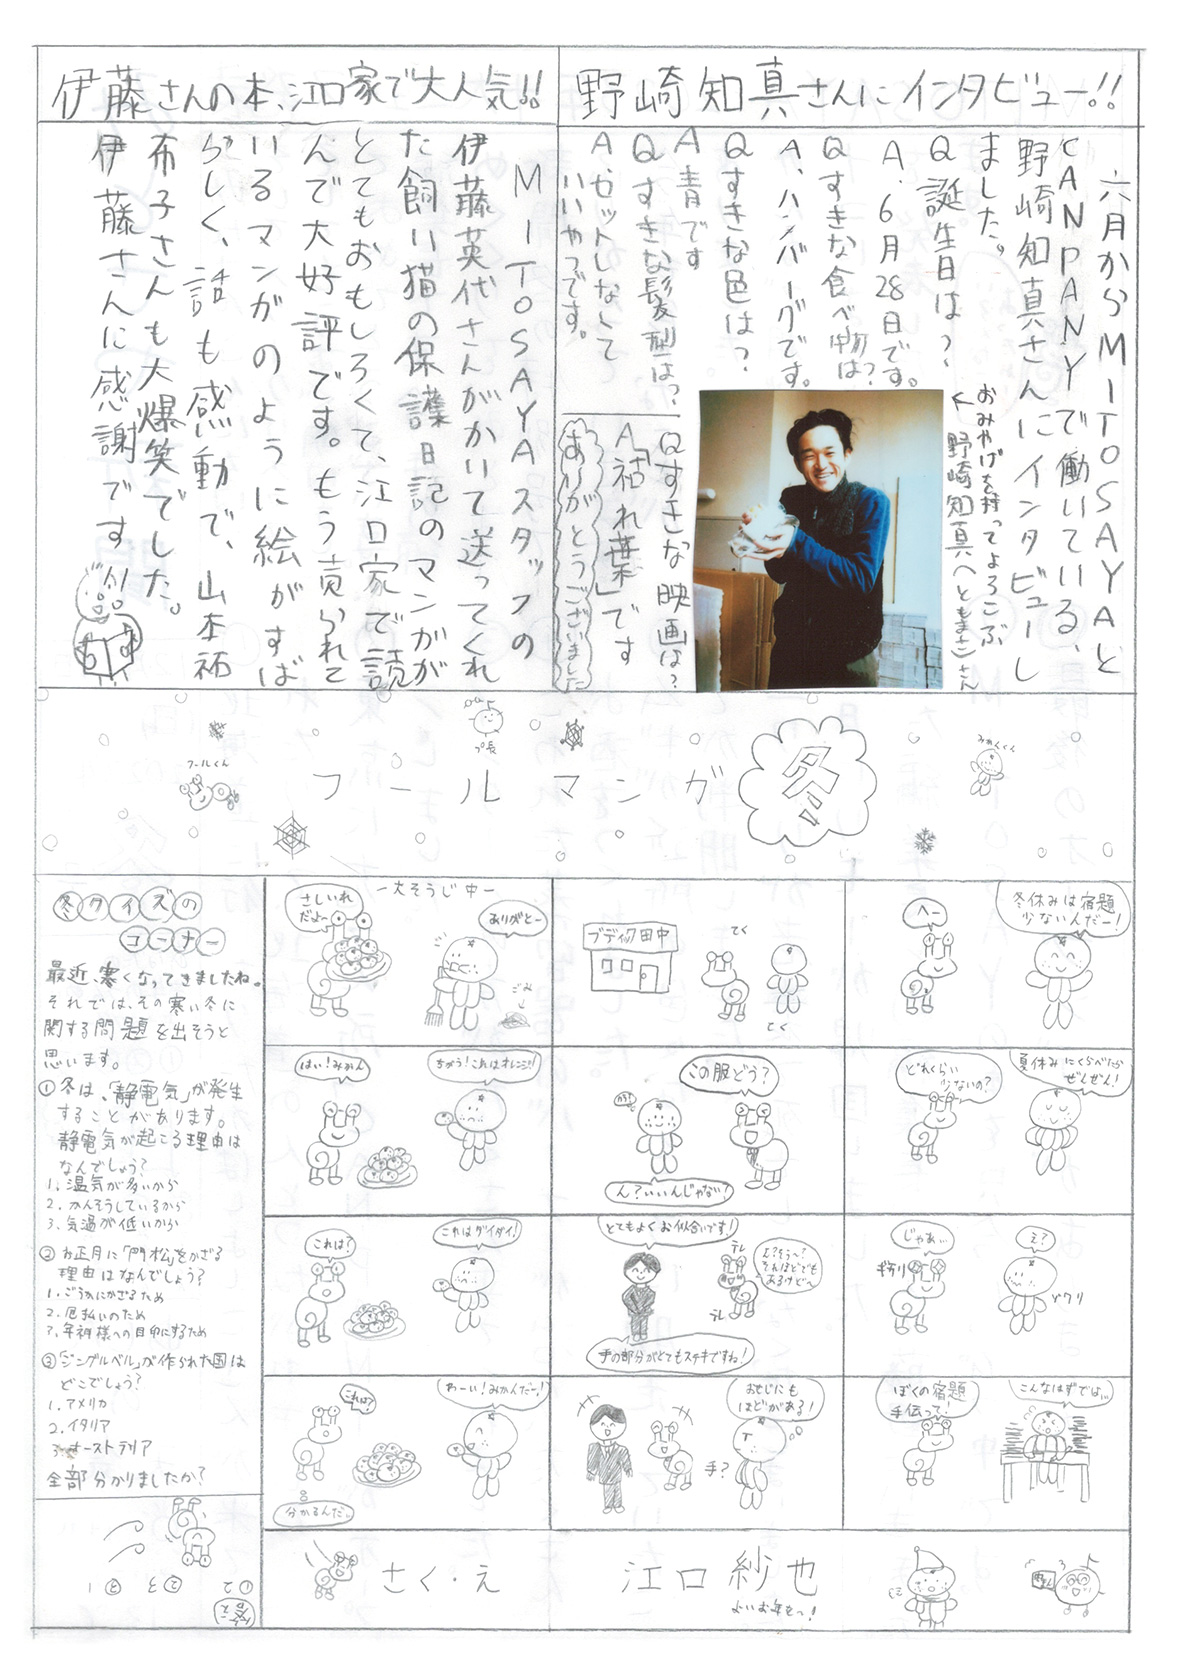 野崎知真さんにインタビュー!!
六月からMITOSAYAと
CANPANYで働いている、
野崎知真さんにインタビューし
ました。
Q誕生日は?
A.6月28日です。
Qすきな食べ物は?
A.ハンバーグです。
Qすきな色は?
A青です
Qすきな髪型は?
A.セットしなくて
いいやつです。
おみやげを持ってよろこぶ
野崎知真(ともまさ)さん
Qすきな映画は?
A「枯れ葉」です
ありがとうございました
伊藤さんの本、江口家で大人気!!
MITOSAYAスタッフの
伊藤英代さんがかいて送ってくれ
た飼い猫の保護日記のマンガが
とてもおもしろくて、江口家で読
んで大好評です。もう売られて
いるマンガのように絵がすば
らしく、話も感動で、山本祐
布子さんも大爆笑でした。
伊藤さんに感謝です!!
フールマンガ
冬
みかんくん
プ長
フールくん
冬休みは宿題
少ないんだー!
へー
夏休みにくらべたら
ぜんぜん!
どれくらい
少ないの?
じゃあ…
ギラリ
え?
ゾクリ
こんなはずでは…
ぼくの宿題
手伝って!
ブティック田中
てく
てく
この服どう?
ん?いいんじゃない?
とてもよくお似合いです!
テレ
え?そう〜?
それほどでも
あるけど〜
テレ
手の部分がとてもステキですね!
おせじにも
ほどがある!
手?
ー大そうじ中ー
さしいれ
だよ〜
ありがとー
ごみ
はい!みかん
ちがう!これはオレンジ!
これは?
これはダイダイ!
これは?
わーい!みかんだー!
分かるんだ…
冬クイズの
コーナー
最近、寒くなってきましたね。
それでは、その寒い冬に
関する問題を出そうと
思います。
①冬は、「静電気」が発生
することがあります。
静電気が起こる理由は
なんでしょう?
1.温気が多いから
2.かんそうしているから
3.気温が低いから
②お正月に「門松」をかざる
理由はなんでしょう?
1.ごうかにかざるため
2.厄払いのため
3.年神様への目印にするため
③「ジングルベル」が作られた国は
どこでしょう?
1.アメリカ
2.イタリア
3.オーストラリア
全部分かりましたか?
答え
①2
②3
③1
さく・え
江口紗也
よいお年をっ!